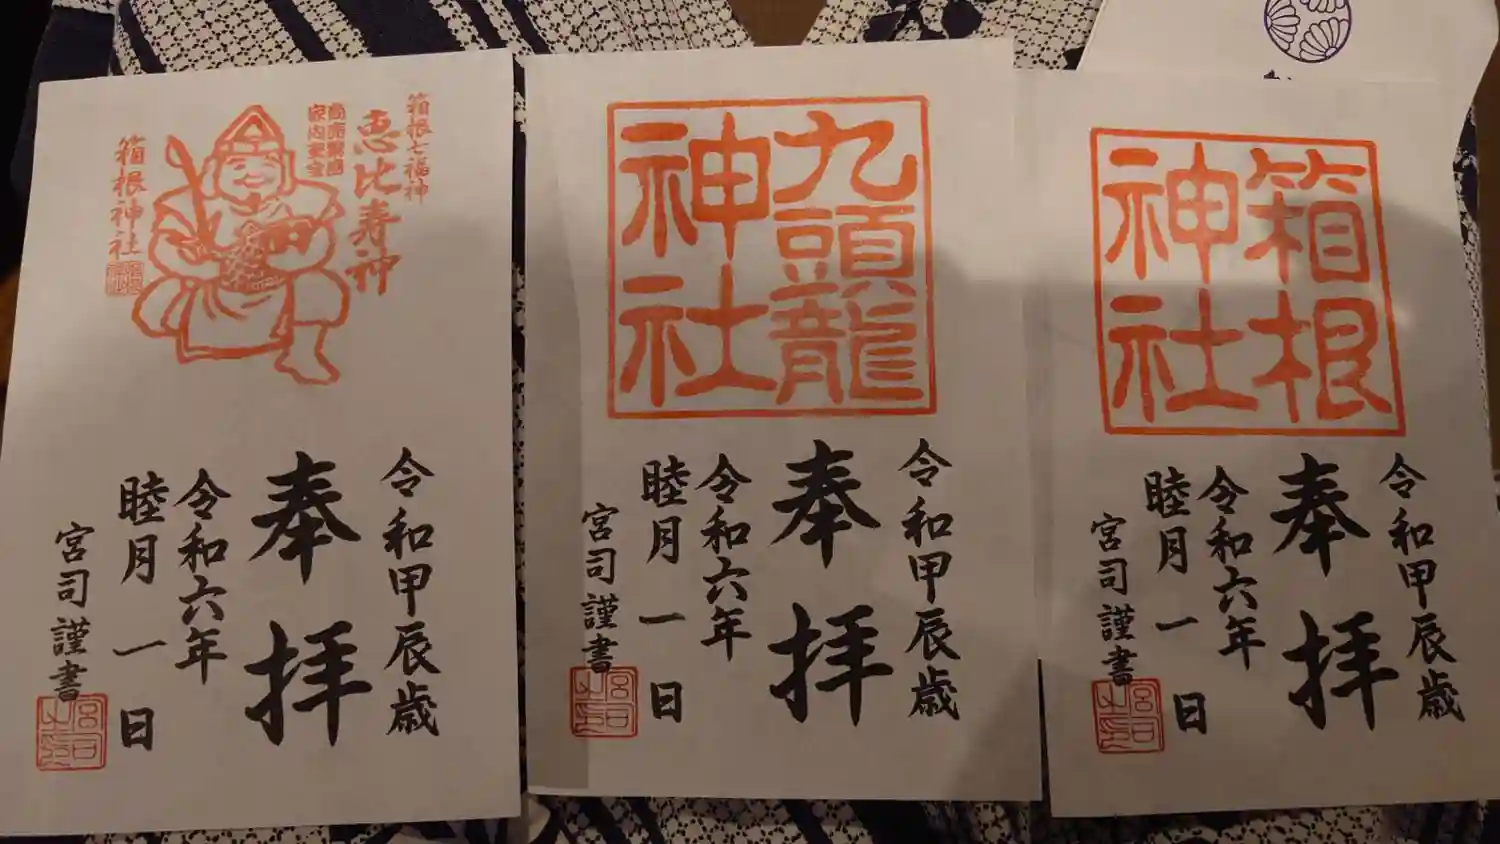 箱根七福神
恵比寿神
商売繁昌
家内安全
箱根神社
令和甲辰歳
奉拝
令和六年
睦月一日
宮司謹書
九頭龍
神社
令和甲辰歳
奉拝
令和六年
睦月一日
宮司謹書
箱根
神社
令和甲辰歳
奉拝
令和六年
睦月一日
宮司謹書